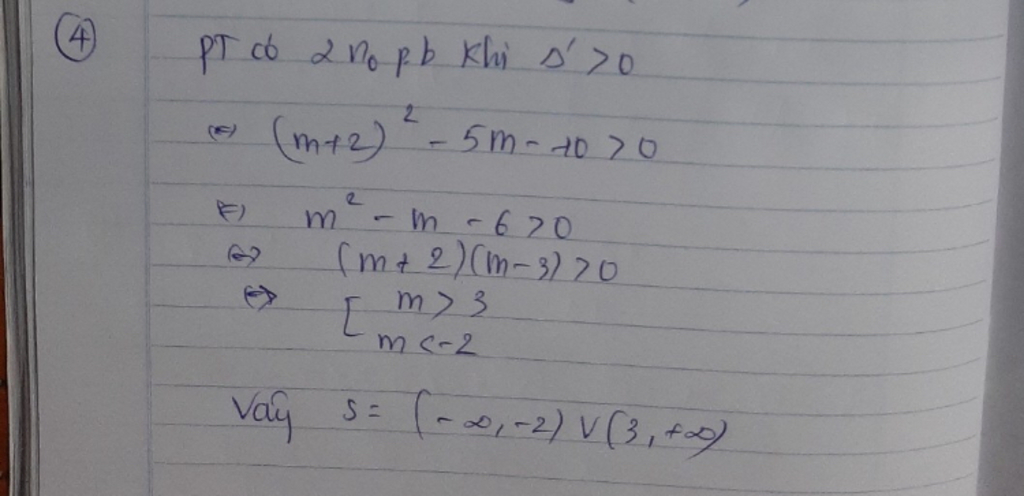 ④ PT có 2 n₀ pb khi Δ' > 0
⇔ (m+2)² - 5m - 10 > 0
⇔ m² - m - 6 > 0
⇔ (m+2)(m-3) > 0
⇔ [ m > 3
m < -2
Vậy S = (-∞, -2) ∪ (3, +∞)